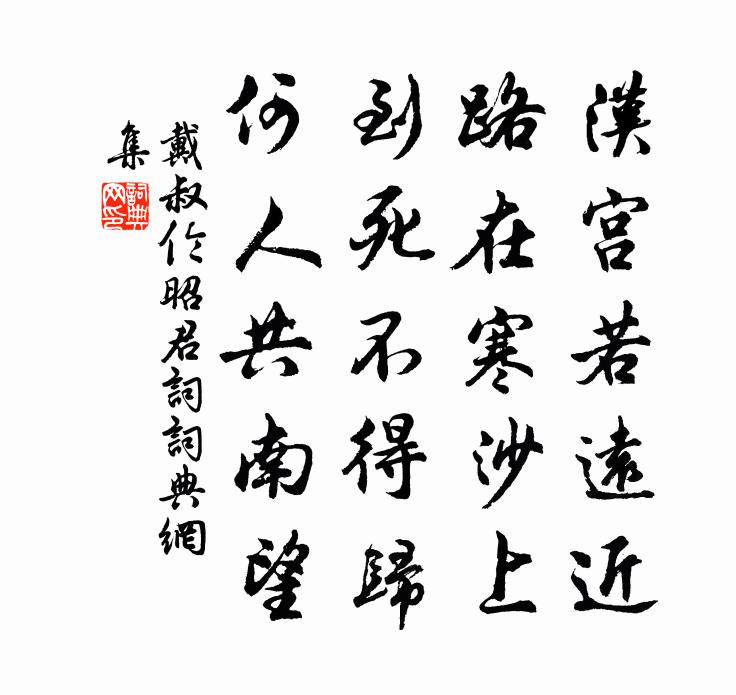 漢宮若遠近
路在寒沙上
到死不得歸
何人共南望
戴叔伦昭君詞詞典網
集
詞典
网印